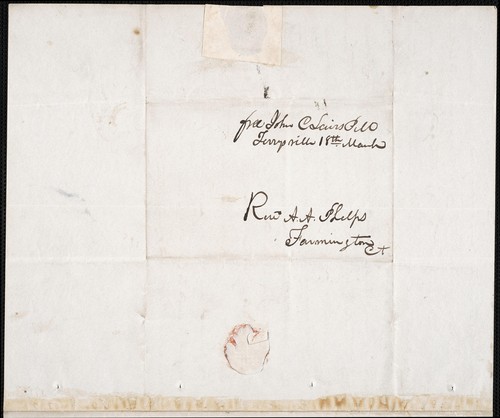 free John C Lewis P.M
Terrysville 18th March
Rev A. A. Phelps
Farmington
Ct